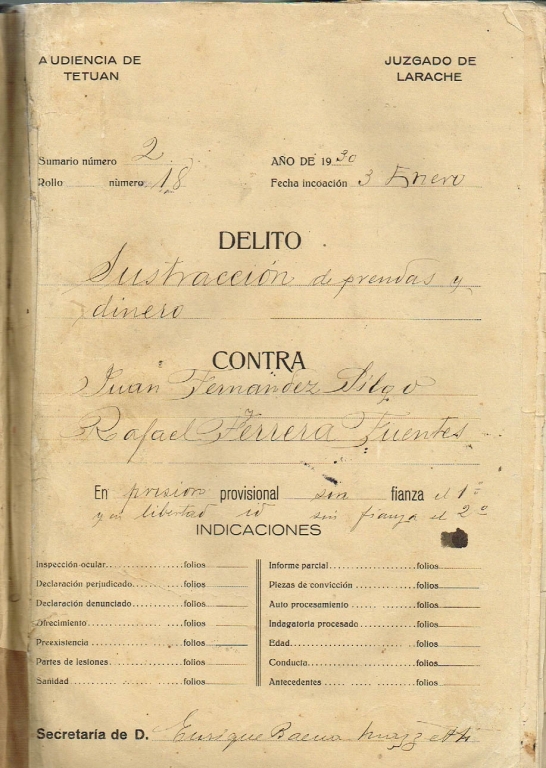 AUDIENCIA DE
TETUAN
JUZGADO DE
LARACHE
Sumario número 2
Rollo número 18
AÑO DE 1930
Fecha incoación 3 Enero
DELITO
Sustracción de prendas y
dinero
CONTRA
Juan Fernandez
Rafael Ferrera Fuentes
En prision provisional sin fianza el 1º
y en libertad id sin fianza el 2º
INDICACIONES
Inspección ocular............folios
Declaración perjudicado............folios
Declaración denunciado............folios
Ofrecimiento............folios
Preexistencia............folios
Partes de lesiones............folios
Sanidad............folios
Informe parcial............folios
Piezas de convicción............folios
Auto procesamiento............folios
Indagatoria procesado............folios
Edad............folios
Conducta............folios
Antecedentes............folios
Secretaría de D. Enrique Baena